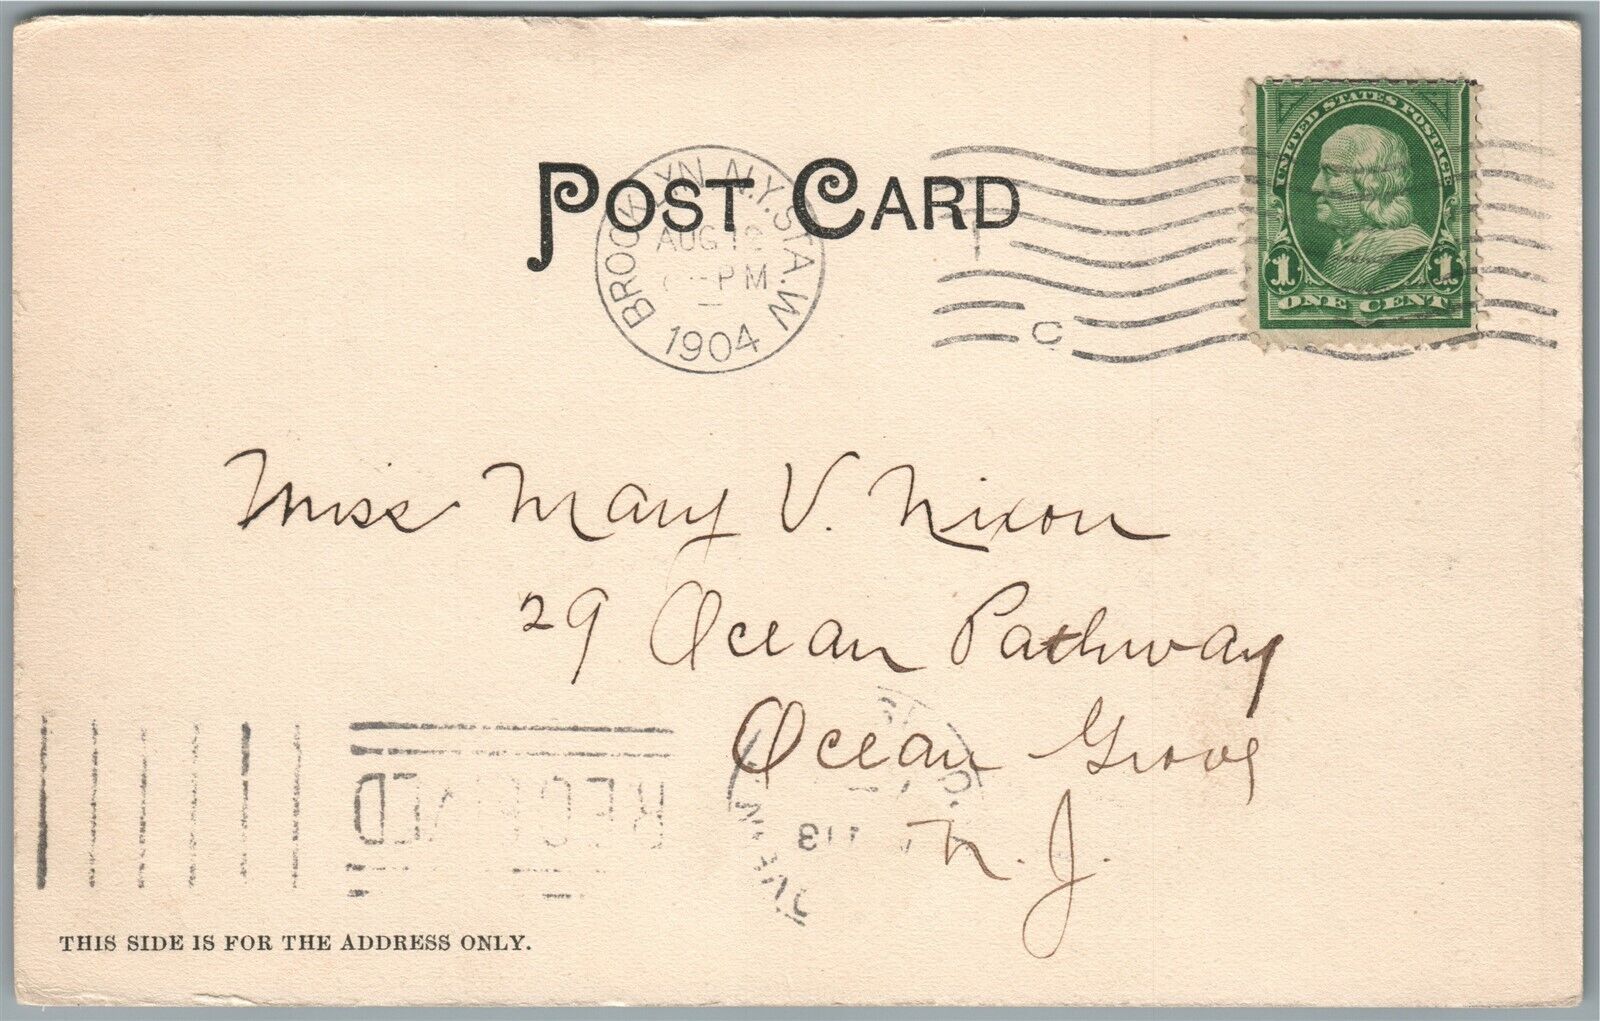 POST CARD
BROOKLYN N.Y. STA. W
AUG
PM
1904
C
UNITED STATES POSTAGE
1 1
ONE CENT
Miss Mary V. Nixon
29 Ocean Pathway
Ocean Grove
N. J.
RECEIVED
13
THIS SIDE IS FOR THE ADDRESS ONLY.